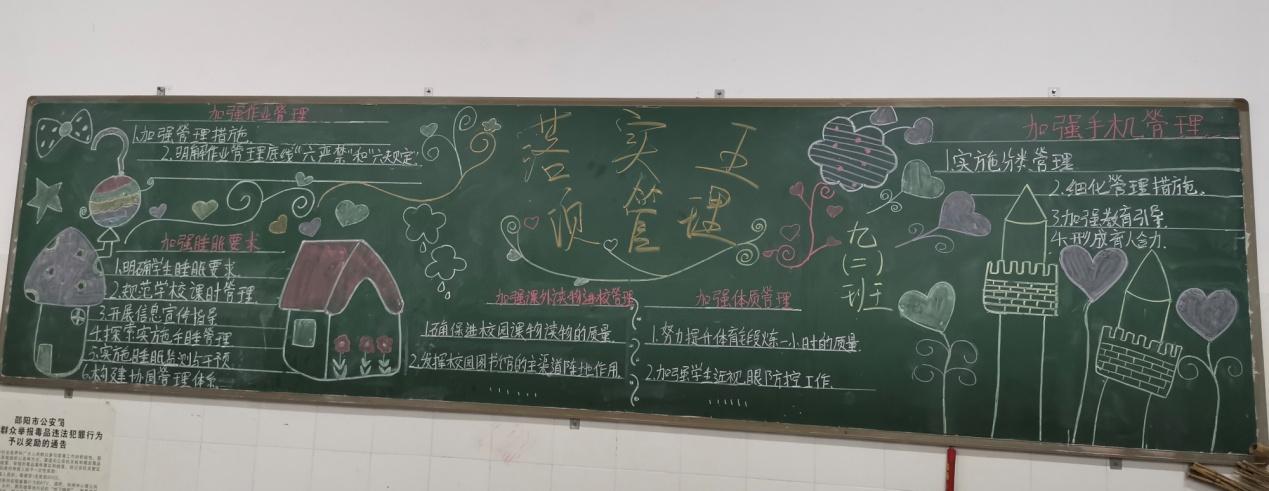 加强作业管理
1.加强管理措施.
2.明解作业管理底线“六严禁”和“六规定”.
加强睡眠要求
1.明确学生睡眠要求.
2.规范学校课时管理.
3.开展信息宣传指导
4.探索实施手睡管理
5.实施睡眠监测占干预
6.构建协同管理体系.
落实五
项管理
九(二)班
加强课外读物进校管理
1.确保进校园课物读物的质量.
2.发挥校园图书馆的主渠道阵地作用.
......
加强体质管理
1.努力提升体育段炼一小时的质量.
2.加强学生近视眼防控工作.
......
加强手机管理
1.实施分类管理
2.细化管理措施.
3.加强教育引导
4.形成育人合力.
邵阳市公安局
群众举报毒品违法犯罪行为
予以奖励的通告